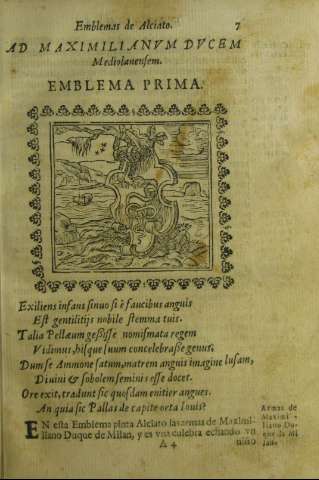 Emblemas de Alciato. 7
AD MAXIMILIANVM DVCEM
Mediolanensem.
EMBLEMA PRIMA.
Exiliens infans sinuo si è faucibus anguis
Est gentilitijs nobile stemma tuis.
Talia Pellæum gessisse nomismata regem
Vidimus, hisque suum concelebrasse genus,
Dum se Ammone satum, matrem anguis imagine lusam,
Diuini & sobolem seminis esse docet.
Ore exit, tradunt sic quosdam enitier angues.
An quia sic Pallas de capite orta Iouis?
EN esta Emblema pinta Alciato las armas de Maximi-
liano Duque de Milan, y es vna culebra echando vn
niño
Armas de
Maximi-
liano Du-
que de Mi
lan.
A 4